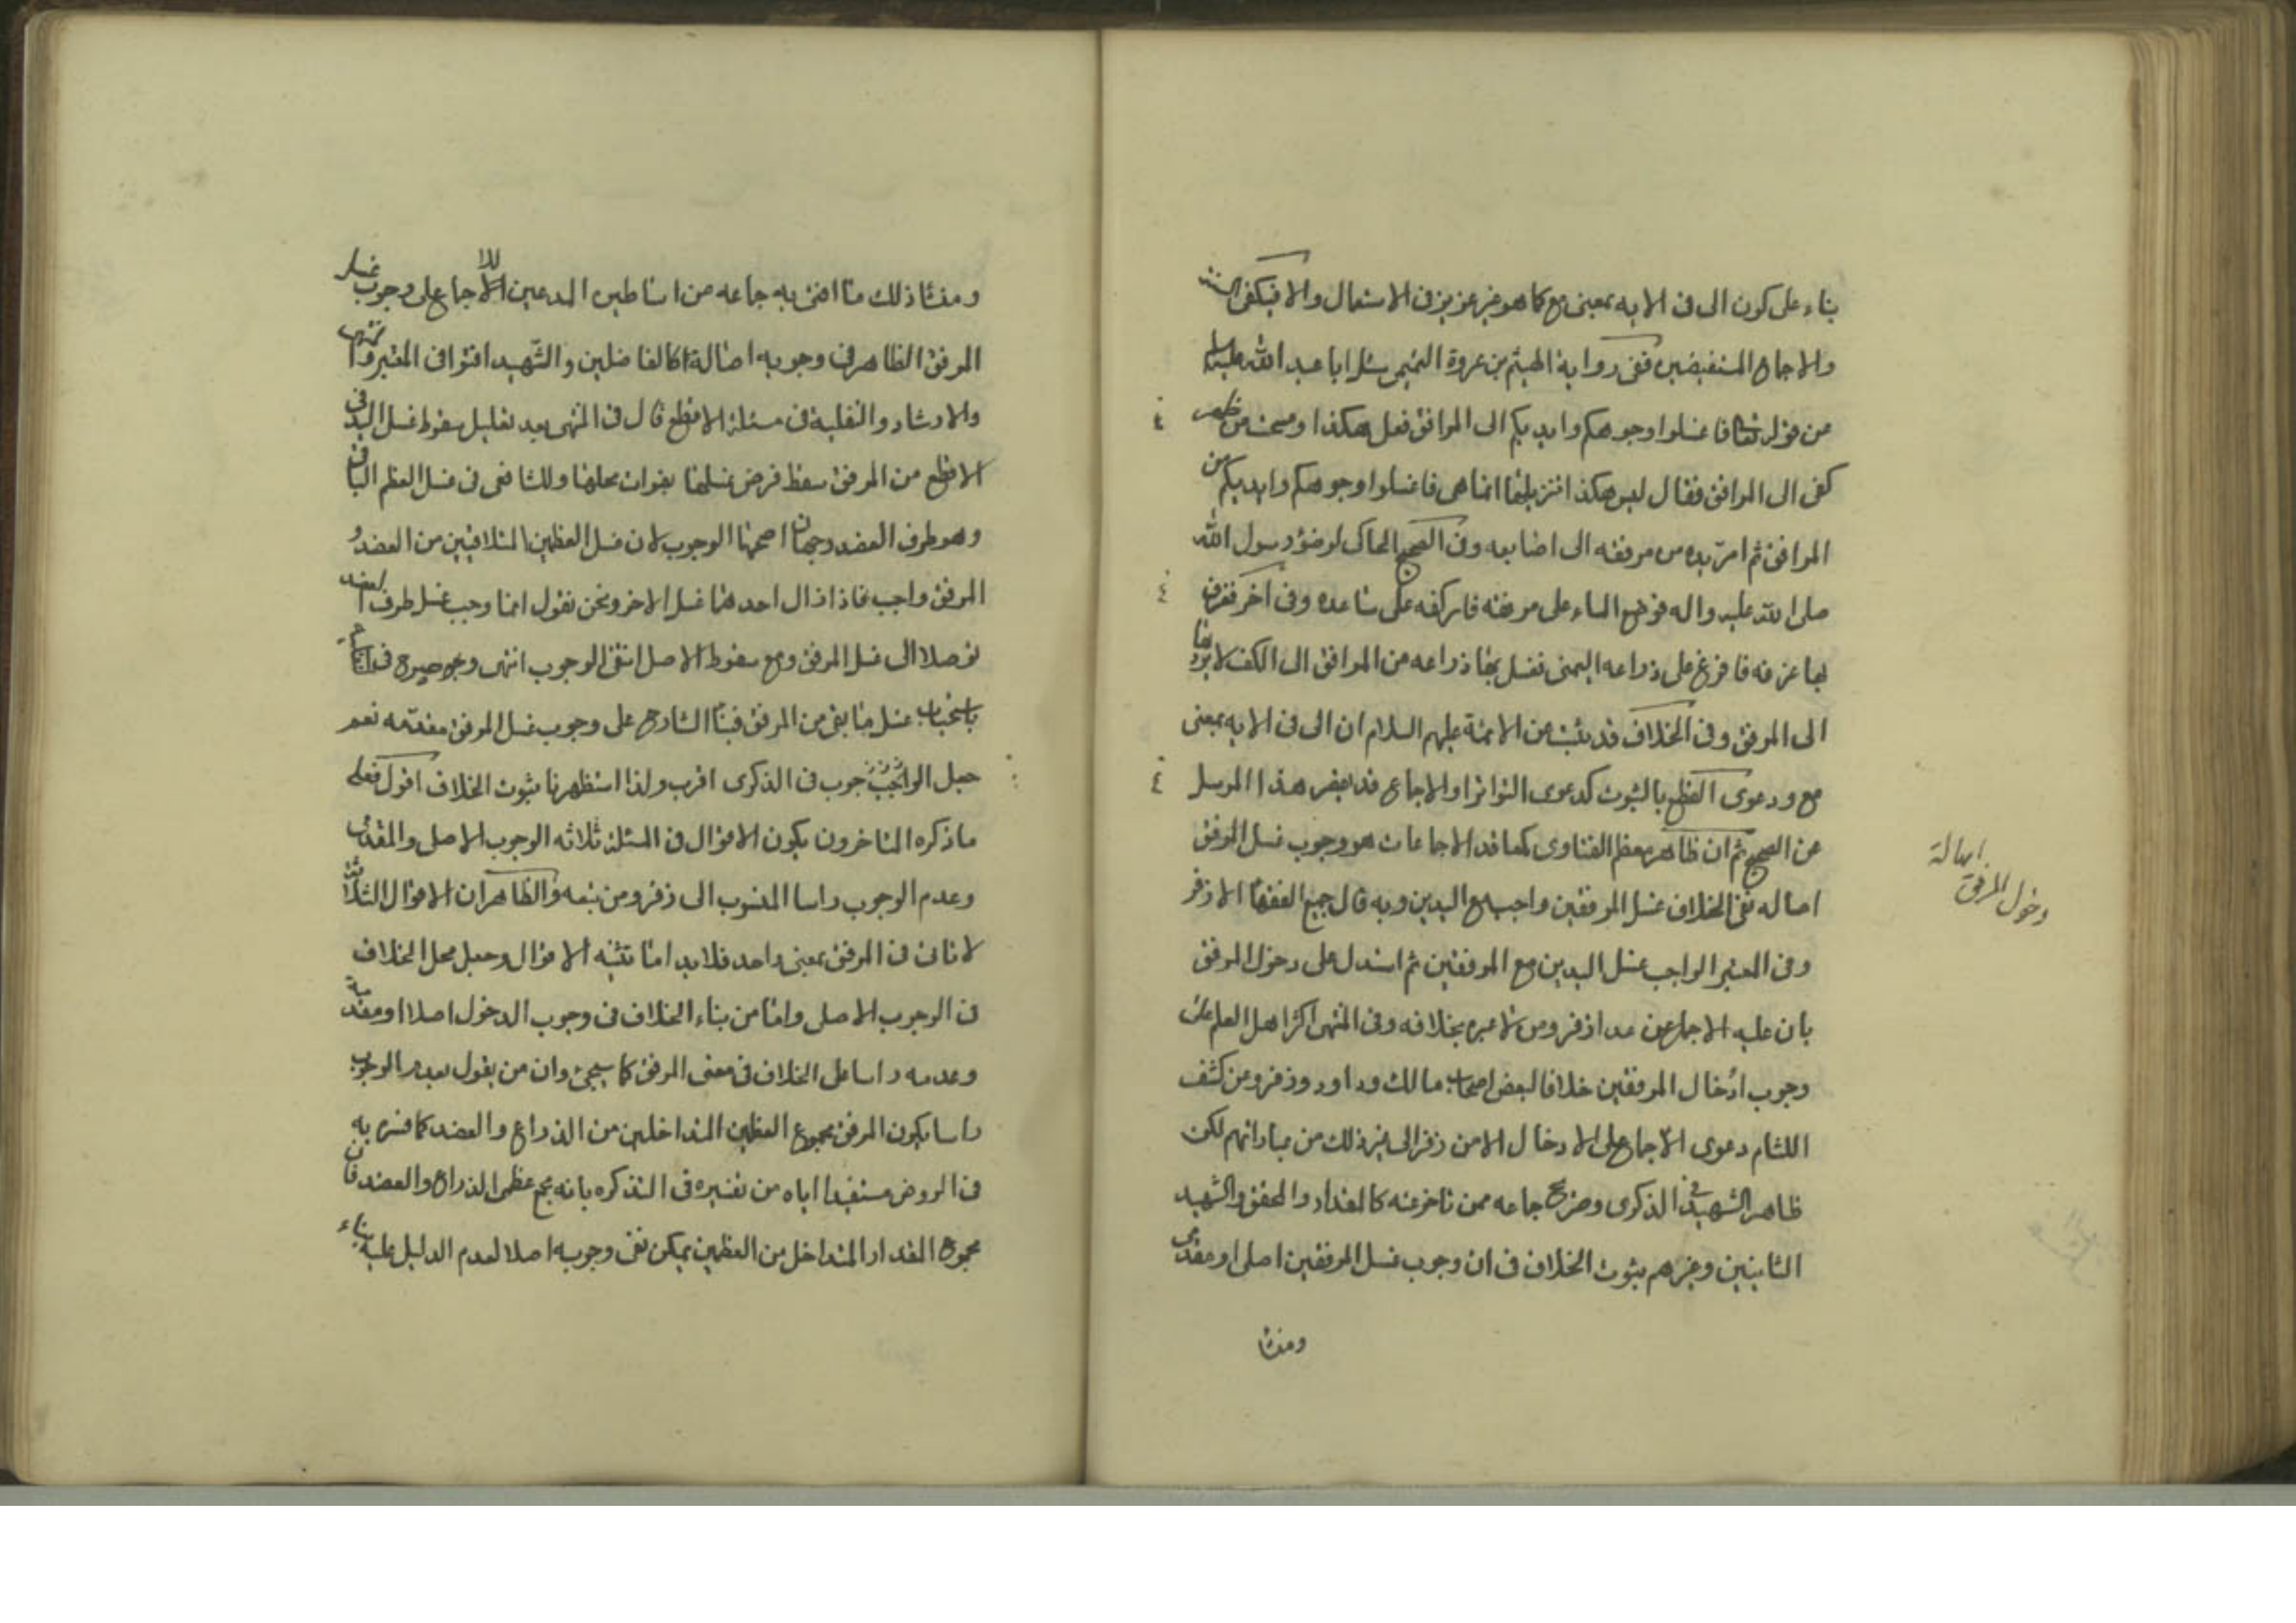 بناء على كون الى فى الايه بمعنى مع كما هو غير عزيز فى الاستعمال والا فيكفى السنة
والاجماع المستفيضين ففى رواية الهيثم بن عروة التميمى سئل ابا عبد الله عليه السلام
عن قوله تعالى فاغسلوا وجوهكم وايديكم الى المرافق فعل هكذا ومسحت من ظهر
كفى الى المرافق فقال ليس هكذا تنزيلها انما هى فاغسلوا وجوهكم وايديكم من
المرافق ثم امر يده من مرفقه الى اصابعه وفى الصحيح الحاكى لوضؤ رسول الله
صلى الله عليه واله فوضع الماء على مرفقه فامر كفه على ساعده وفى اخر فغرف
بها غرفه فافرغ على ذراعه اليمنى فغسل بها ذراعه من المرافق الى الكف لا يردها
الى المرفق وفى الخلاف قد ثبت عن الائمة عليهم السلام ان الى فى الايه بمعنى
مع ودعوى القطع بالثبوت كدعوى التواتر او الاجماع قد يغنى هذا المرسل
عن الصحيح ثم ان ظاهر معظم الفتاوى كمعاقد الاجماعات هو وجوب غسل المرفق
اصاله نفى الخلاف غسل المرفقين واجب مع اليدين وبه قال جميع الفقهاء الا زفر
وفى المعتبر الواجب غسل اليدين مع المرفقين ثم استدل على دخول المرفق
بان عليه الاجماع عن عدا زفر ومن لا عبره بخلافه وفى المنتهى اكثر اهل العلم على
وجوب ادخال المرفقين خلافا لبعض اصحاب مالك وداود وزفر وعن كشف
اللثام دعوى الاجماع على الادخال الا من زفر الى غير ذلك من عباراتهم لكن
ظاهر الشهيد فى الذكرى وصرح جماعه ممن تاخر عنه كالمقداد والمحقق والشهيد
الثانيين وغيرهم ثبوت الخلاف فى ان وجوب غسل المرفقين اصلى او مقدمى
ومنشا
اصالة
دخول المرفق
ومنشا ذلك ما افتى به جماعه من اساطين المدعين للاجماع على وجوب غسل
المرفق الظاهر فى وجوبه اصالة كالفاضلين والشهيد افتوا فى المعتبر والمنتهى
والارشاد والنفليه فى مسئلة الاقطع قال فى المنتهى بعد تعليل سقوط غسل اليد فى
الاقطع من المرفق سقط فرض غسلها بفوات محلها وللشافعى فى غسل العظم الباقى
وهو طرف العضد وجهان اصحهما الوجوب لان غسل العظمين المتلاقيين من العضد و
المرفق واجب فاذا زال احدهما غسل الاخر ونحن نقول انما وجب غسل طرف العضد
توصلا الى غسل المرفق ومع سقوط الاصل انتفى الوجوب انتهى
باستحباب غسل ما بقى من المرفق على وجوب غسل المرفق مقدمه نعم
جعل الوجوب فى الذكرى اقرب ولذا استظهرنا ثبوت الخلاف اقول فعلى
ما ذكره المتاخرون يكون الاقوال فى المسئلة ثلاثه الوجوب الاصلى والمقدمى
وعدم الوجوب راسا المنسوب الى زفر ومن تبعه والظاهر ان الاقوال الثلاثة
لا تاتى فى المرفق بمعنى واحد فلابد اما تثنيه الاقوال وجعل محل الخلاف
فى الوجوب الاصلى واما من بناء الخلاف فى وجوب الدخول اصلا او مقدمة
وعدمه راسا على الخلاف فى معنى المرفق كما سيجئ وان من يقول بعدم الوجوب
راسا يكون المرفق مجموع العظمين المتداخلين من الذراع والعضد كما فسره به
فى الروض مستفيدا اياه من تفسيره فى التذكره بانه مجمع عظمى الذراع والعضد فان
مجموع المقدار المتداخل من العظمين يمكن نفى وجوبه اصلا لعدم الدليل عليه بناء